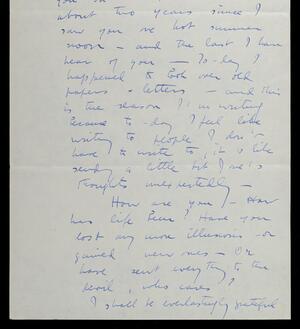 about two years since I
saw you one hot summer
noon – and the last I have
hear of you – To-day I
happened to look over old
papers & letters – and this
is the reason I'm writing
because to-day I feel like
writing to people I don't
have to write to, it is like
sending a little bit of one's
thoughts unexpectedly –
How are you? – How
has life been? Have you
lost any more illusions – or
gained new ones – Or
have sent everything to the
devil, who cares?
I shall be everlastingly grateful